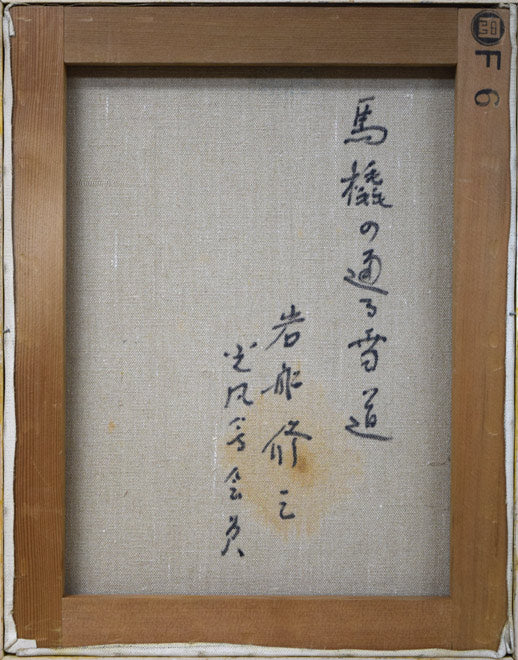 馬橇の通る雪道
岩船修三
光風会会員
F6